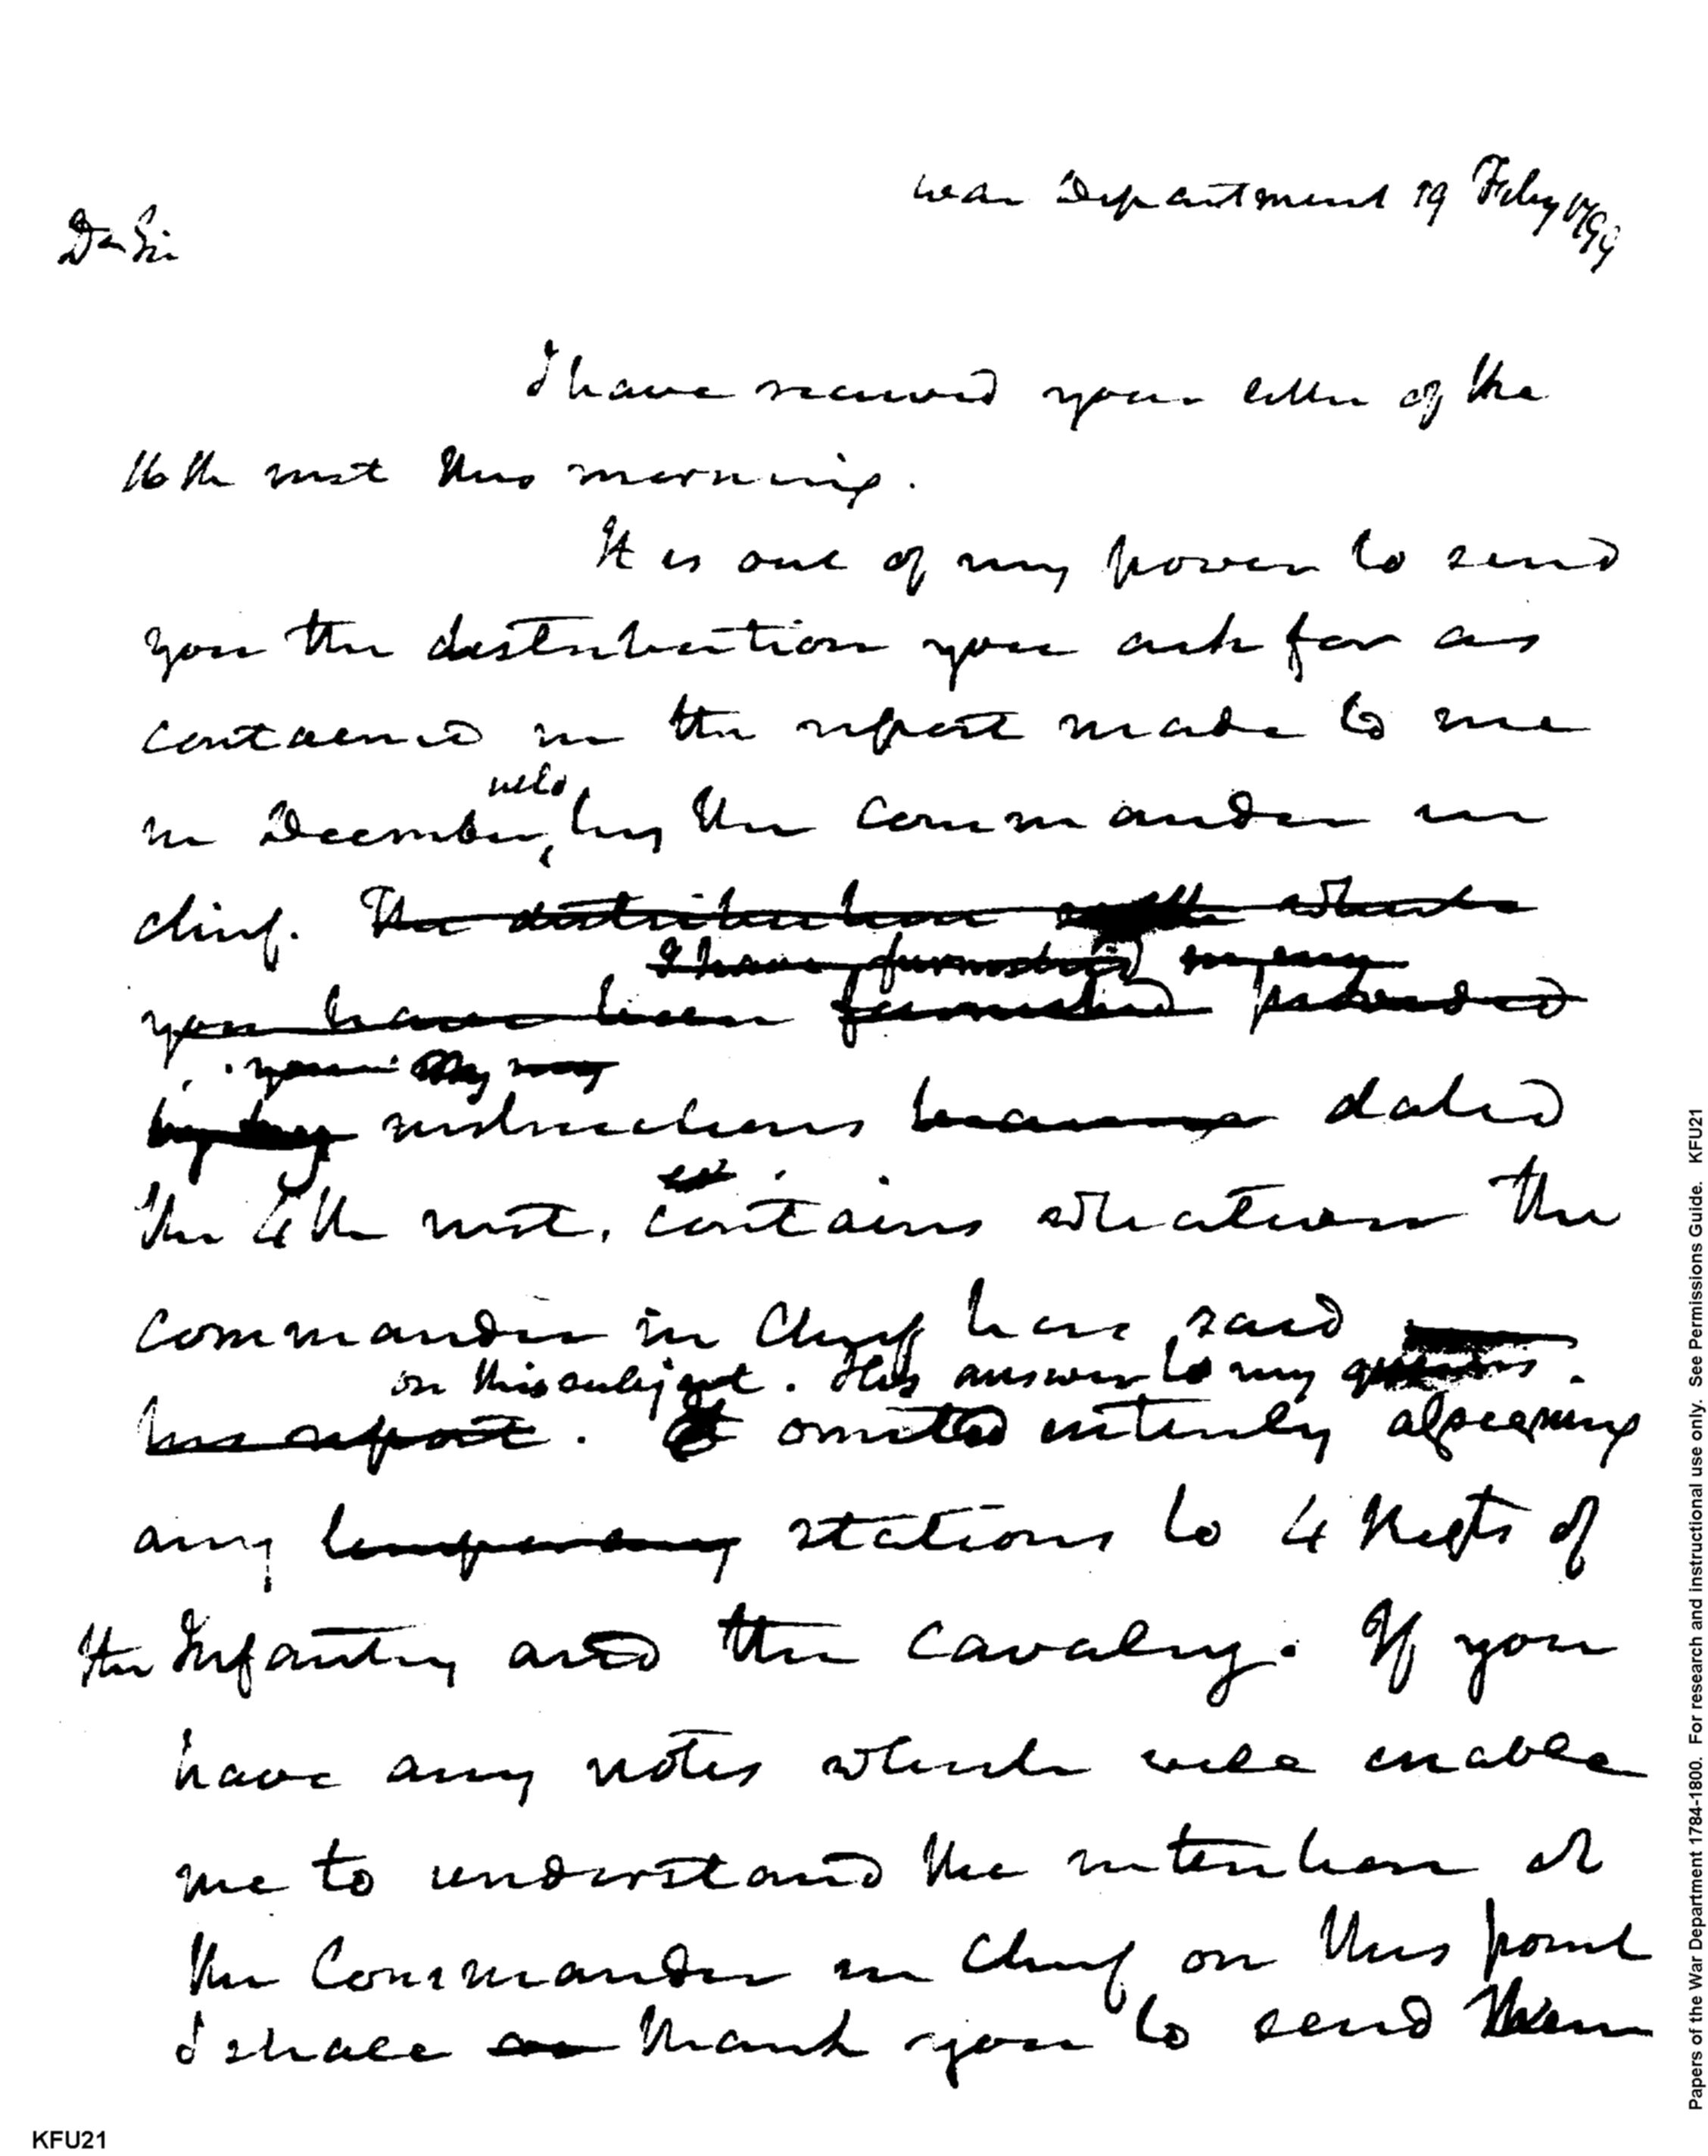 War Department 19 Feby 1799
Dr Sir
I have received your letter of the
16th inst this morning.
It is out of my power to send
you the distribution you ask for as
contained in the report made to me
in December, ulto by the Commander in
chief. The distribution which
I have furnished in my
you have been furnished
your My my
by my instructions dated
the 4th inst. contains whatever the
commander in Chief have said
on this subject. His answer to my
his report. omitted entirely assigning
any temporary stations to 4 Regts of
the Infantry and the cavalry. If you
have any notes which will enable
me to understand the intention of
the Commander in Chief on this point
I shall thank you to send them
Papers of the War Department 1784-1800. For research and instructional use only. See Permissions Guide. KFU21
KFU21